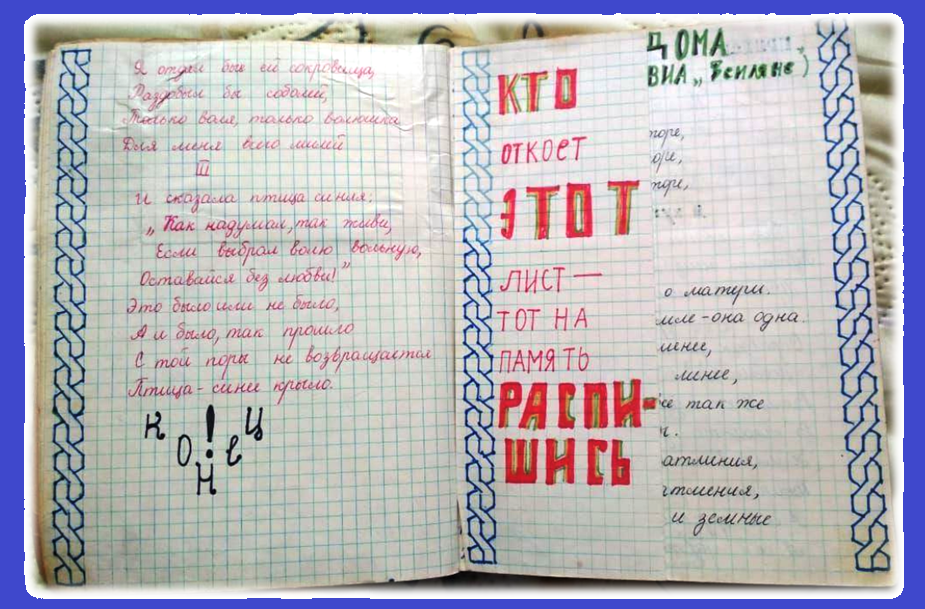 Я отдал бы ей сокровища,
Раздобыл бы соболей,
Только воля, только волюшка
Для меня всего милей
III
И сказала птица синяя:
„Как надумал, так живи,
Если выбрал волю вольную,
Оставайся без любви!"
Это было или не было,
А и было, так прошло
С той поры не возвращается
Птица - синее крыло.
КОНЕЦ!
КТО
ОТКОЕТ
ЭТОТ
ЛИСТ —
ТОТ НА
ПАМЯТЬ
РАСПИ-
ШИСЬ
ДОМА
ВИА „ Земляне")
торе,
оре,
торе,
о матери.
мле - она одна.
менее,
линее,
же так же
атмения,
чтмения,
и земные